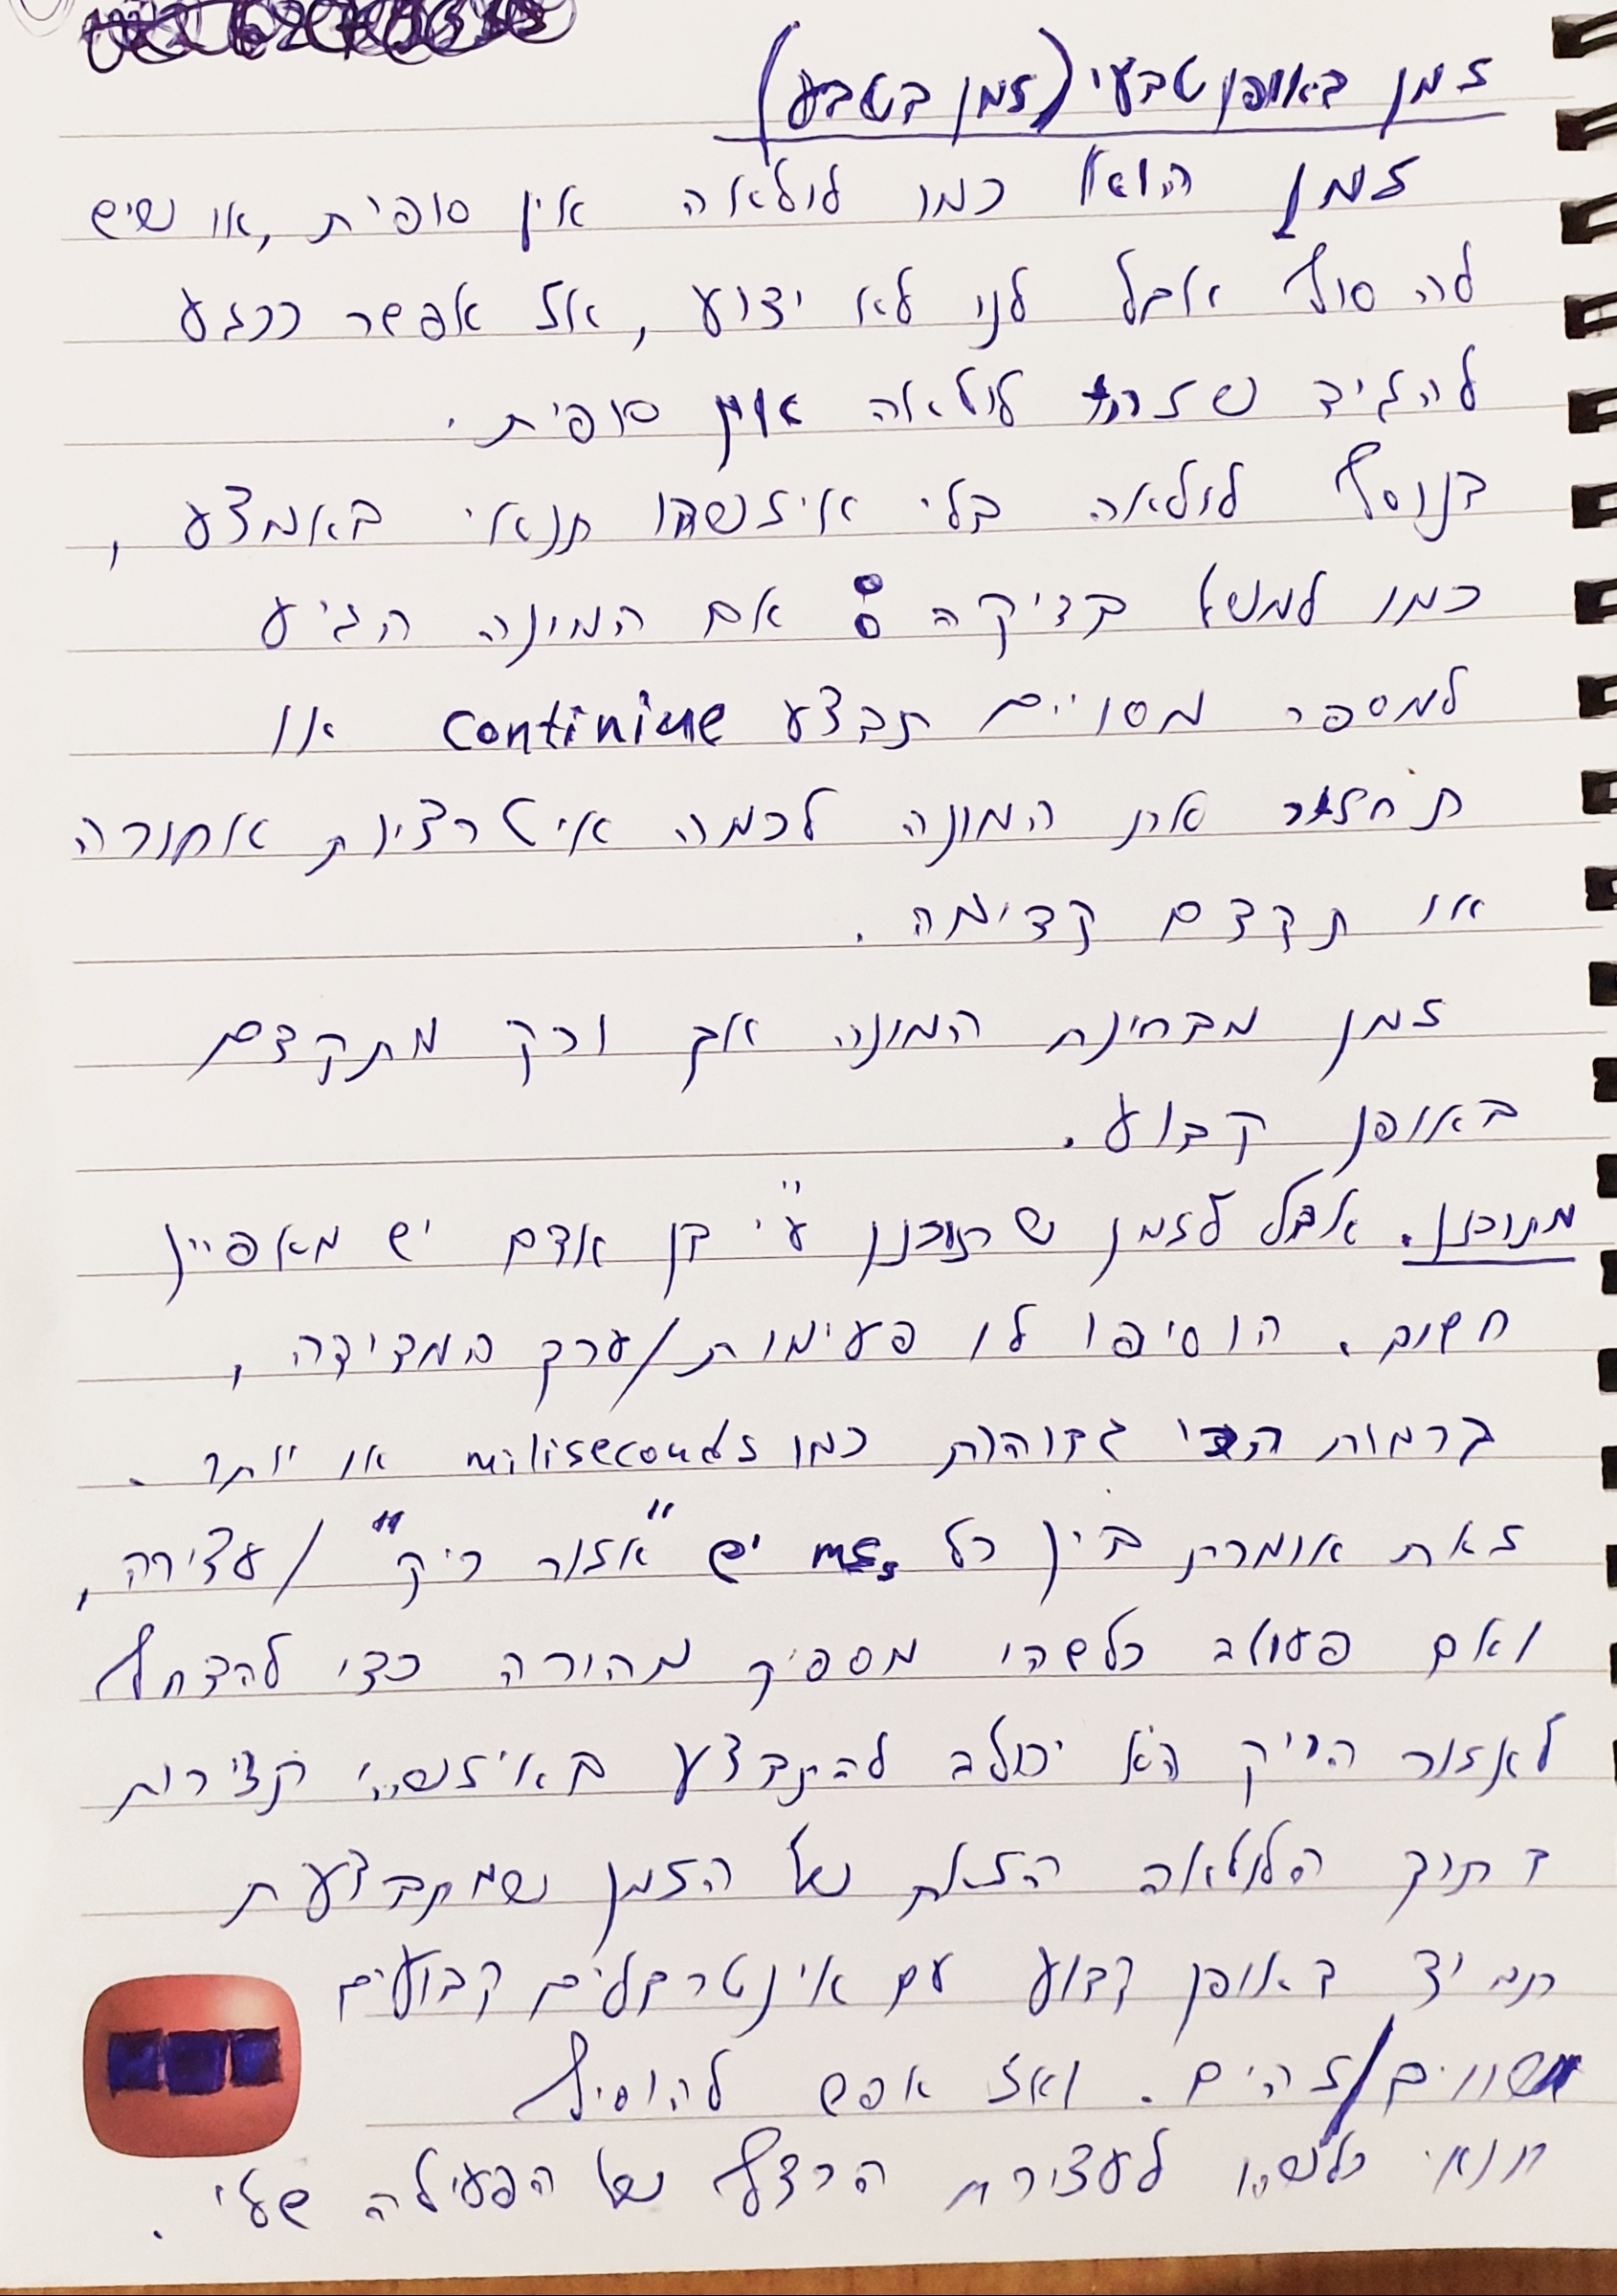 זמן באופן טבעי (זמן בטבע)
זמן הוא כמו לולאה אין סופית, או שיש
לה סוף אבל לנו לא ידוע, אז אפשר כרגע
להגיד שזו לולאה אין סופית.
בנוסף לולאה בלי איזשהו תנאי באמצע,
כמו למשל בדיקה: אם המונה הגיע
למספר מסויים תבצע continiue או
תחזיר את המונה לכמה איטרציות אחורה
או תקדם קדימה.
זמן מבחינת המונה אך ורק מתקדם
באופן קבוע.
מתוכנן. אבל לזמן שתוכנן ע"י בן אדם יש מאפיין
חשוב. הוסיפו לו פעימות/ערך המדידה,
ברמות הכי גבוהות כמו miliseconds או יותר.
זאת אומרת בין כל ms יש "אזור ריק"/עצירה,
ואם פעולה כלשהי מספיק מהירה כדי להדחף
לאזור הריק היא יכולה להתבצע באיזשהי קצירות
בתוך הלולאה הזאת של הזמן שמתבצעת
תמיד באופן קבוע עם אינטרבלים קבועים
שווים/זהים. ואז אפש להוסיף
תנאי כלשהו לעצירת הרצף של הפעילה שלי.